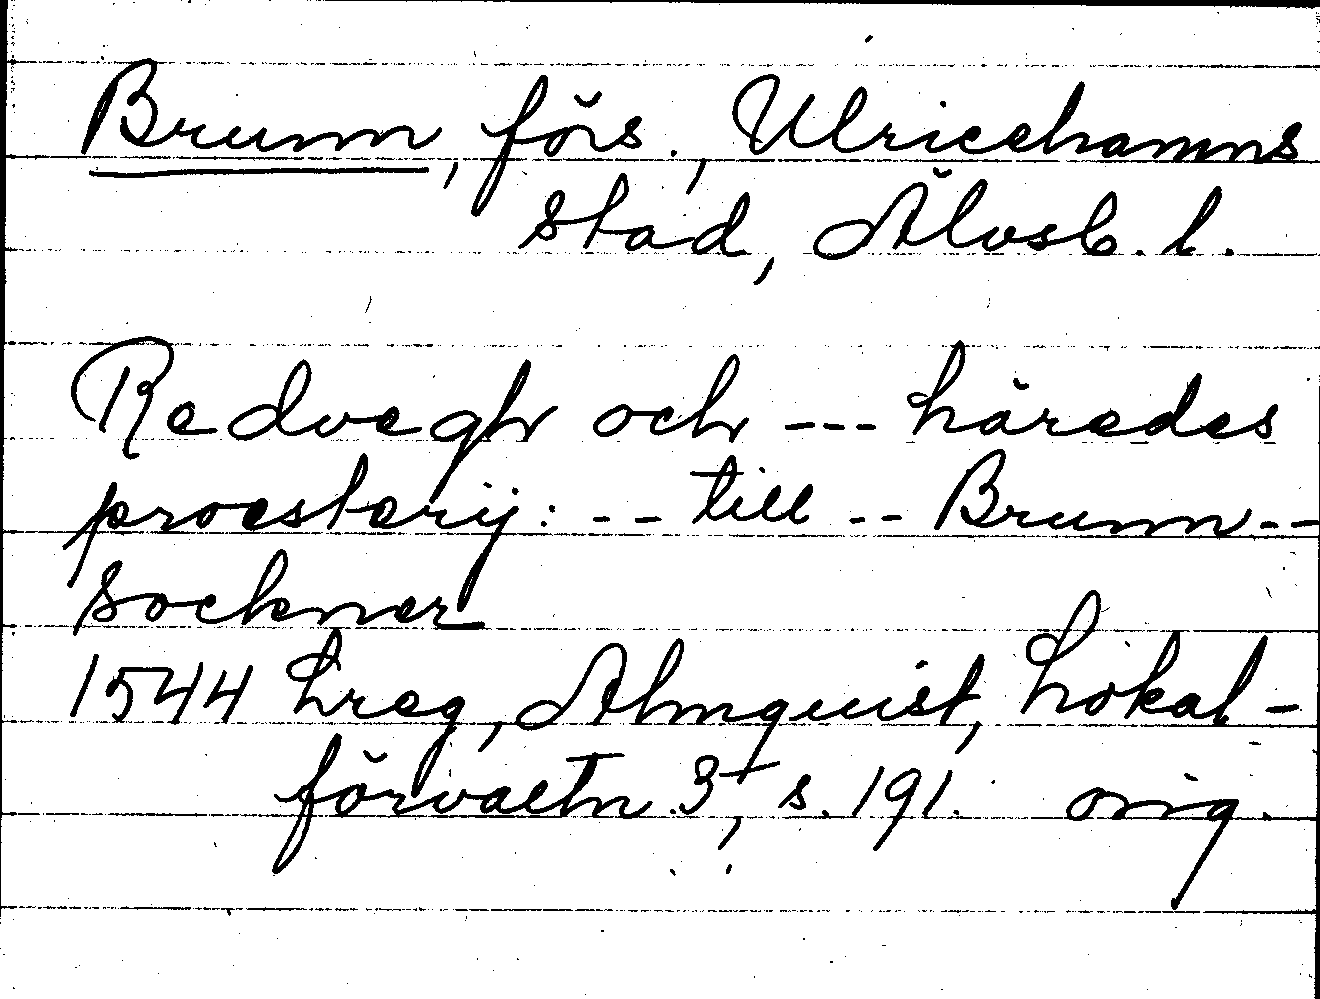 Brunn, förs., Ulricehamns
stad, Älvsb. l.
Redvegh och --- häredes
proesterij: -- till -- Brunn --
Sockner
1544 Lreg, Almquist, Lokal-
förvaltn. 3, s. 191. orig.